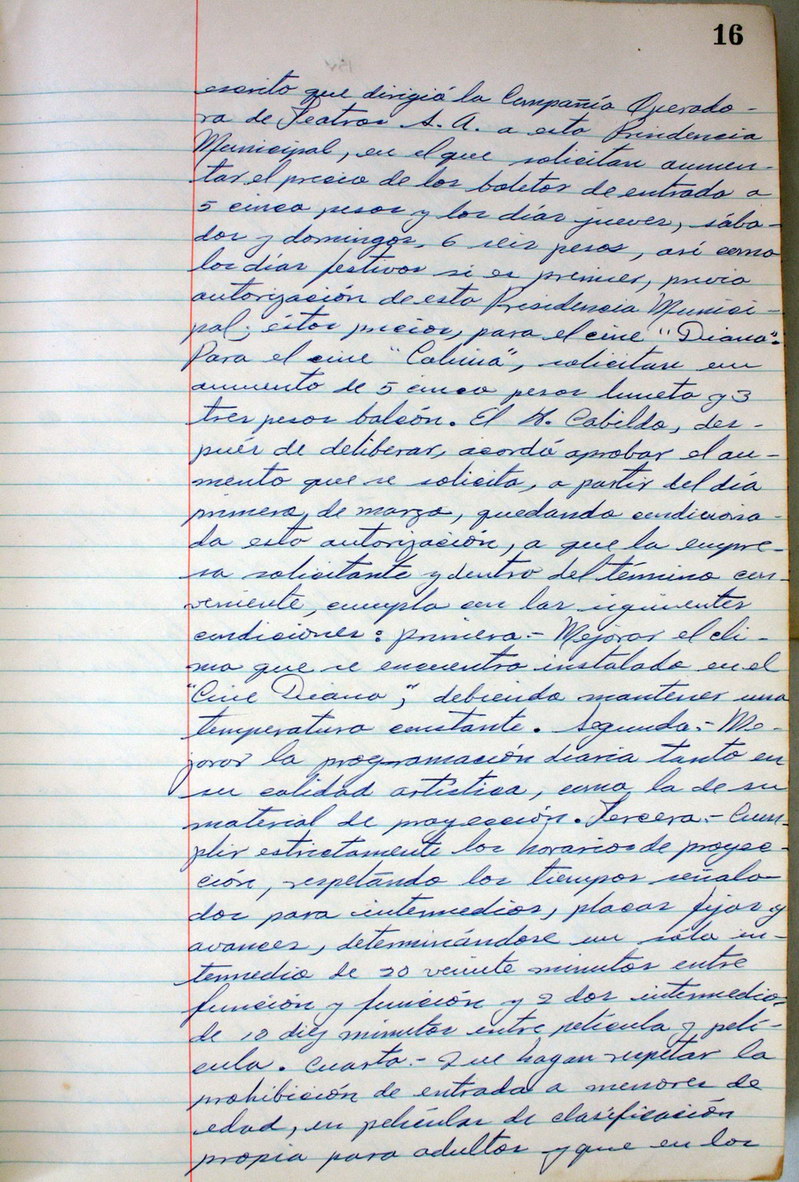 16
escrito que dirigió la Compañía Operado-
ra de Teatros S. A. a esta Presidencia
Municipal, en el que solicitan aumen-
tar el precio de los boletos de entrada a
5 cinco pesos y los días jueves, sába-
dos y domingos, 6 seis pesos, así como
los días festivos si es premier, previa
autorización de esta Presidencia Munici-
pal; éstos precios, para el cine "Diana".
Para el cine "Colima", solicitan un
aumento de 5 cinco pesos luneta y 3
tres pesos balcón. El H. Cabildo, des-
pués de deliberar, acordó aprobar el au-
mento que se solicita, a partir del día
primero de marzo, quedando condiciona-
da esta autorización, a que la empre-
sa solicitante y dentro del término con-
veniente, cumpla con las siguientes
condiciones: primera.- Mejorar el cli-
ma que se encuentra instalado en el
"Cine Diana", debiendo mantener una
temperatura constante. Segunda.- Me-
joror la programación diaria tanto en
su calidad artística, como la de su
material de proyección. Tercera.- Cum-
plir estrictamente los horarios de proyec-
ción, respetando los tiempos señala-
dos para intermedios, placas fijas y
avances, determinándose un sólo in-
termedio de 20 veinte minutos entre
función y función y 2 dos intermedios
de 10 diez minutos entre película y pelí-
cula. Cuarta.- Que hagan respetar la
prohibición de entrada a menores de
edad, en películas de clasificación
propia para adultos y que en los